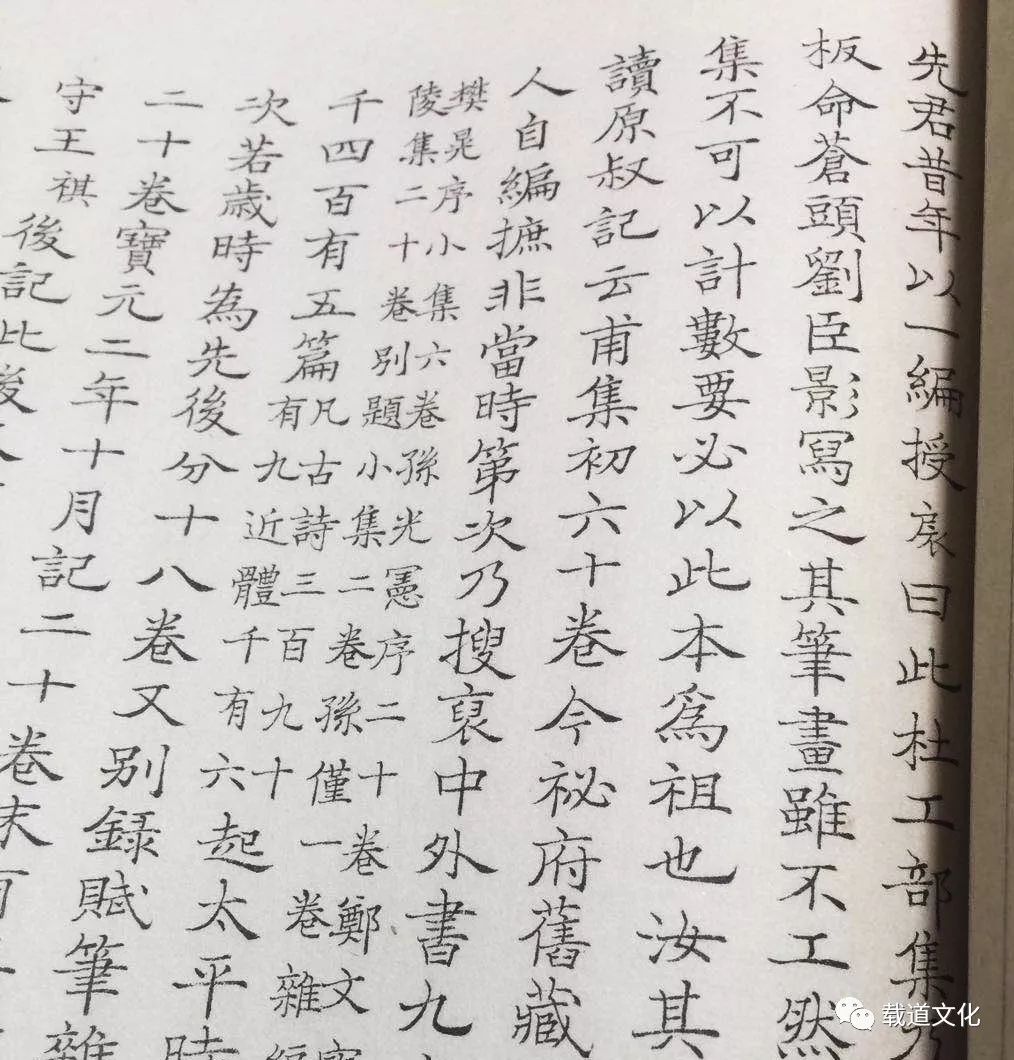 先君昔年以一編授扆曰此杜工部集乃
板命蒼頭劉臣影寫之其筆畫雖不工然
集不可以計數要必以此本爲祖也汝其
讀原叔記云甫集初六十卷今祕府舊藏
人自編摭非當時第次乃搜裒中外書九
樊晃序小集六卷孫光憲序二十卷鄭文寶
陵集二十卷別題小集二卷孫僅一卷雜編
千四百有五篇凡古詩三百九十有九近體千有六起太平時
次若歲時為先後分十八卷又别録賦筆雜
二十卷寶元二年十月記二十卷末有
守王祺後記此後
载道文化